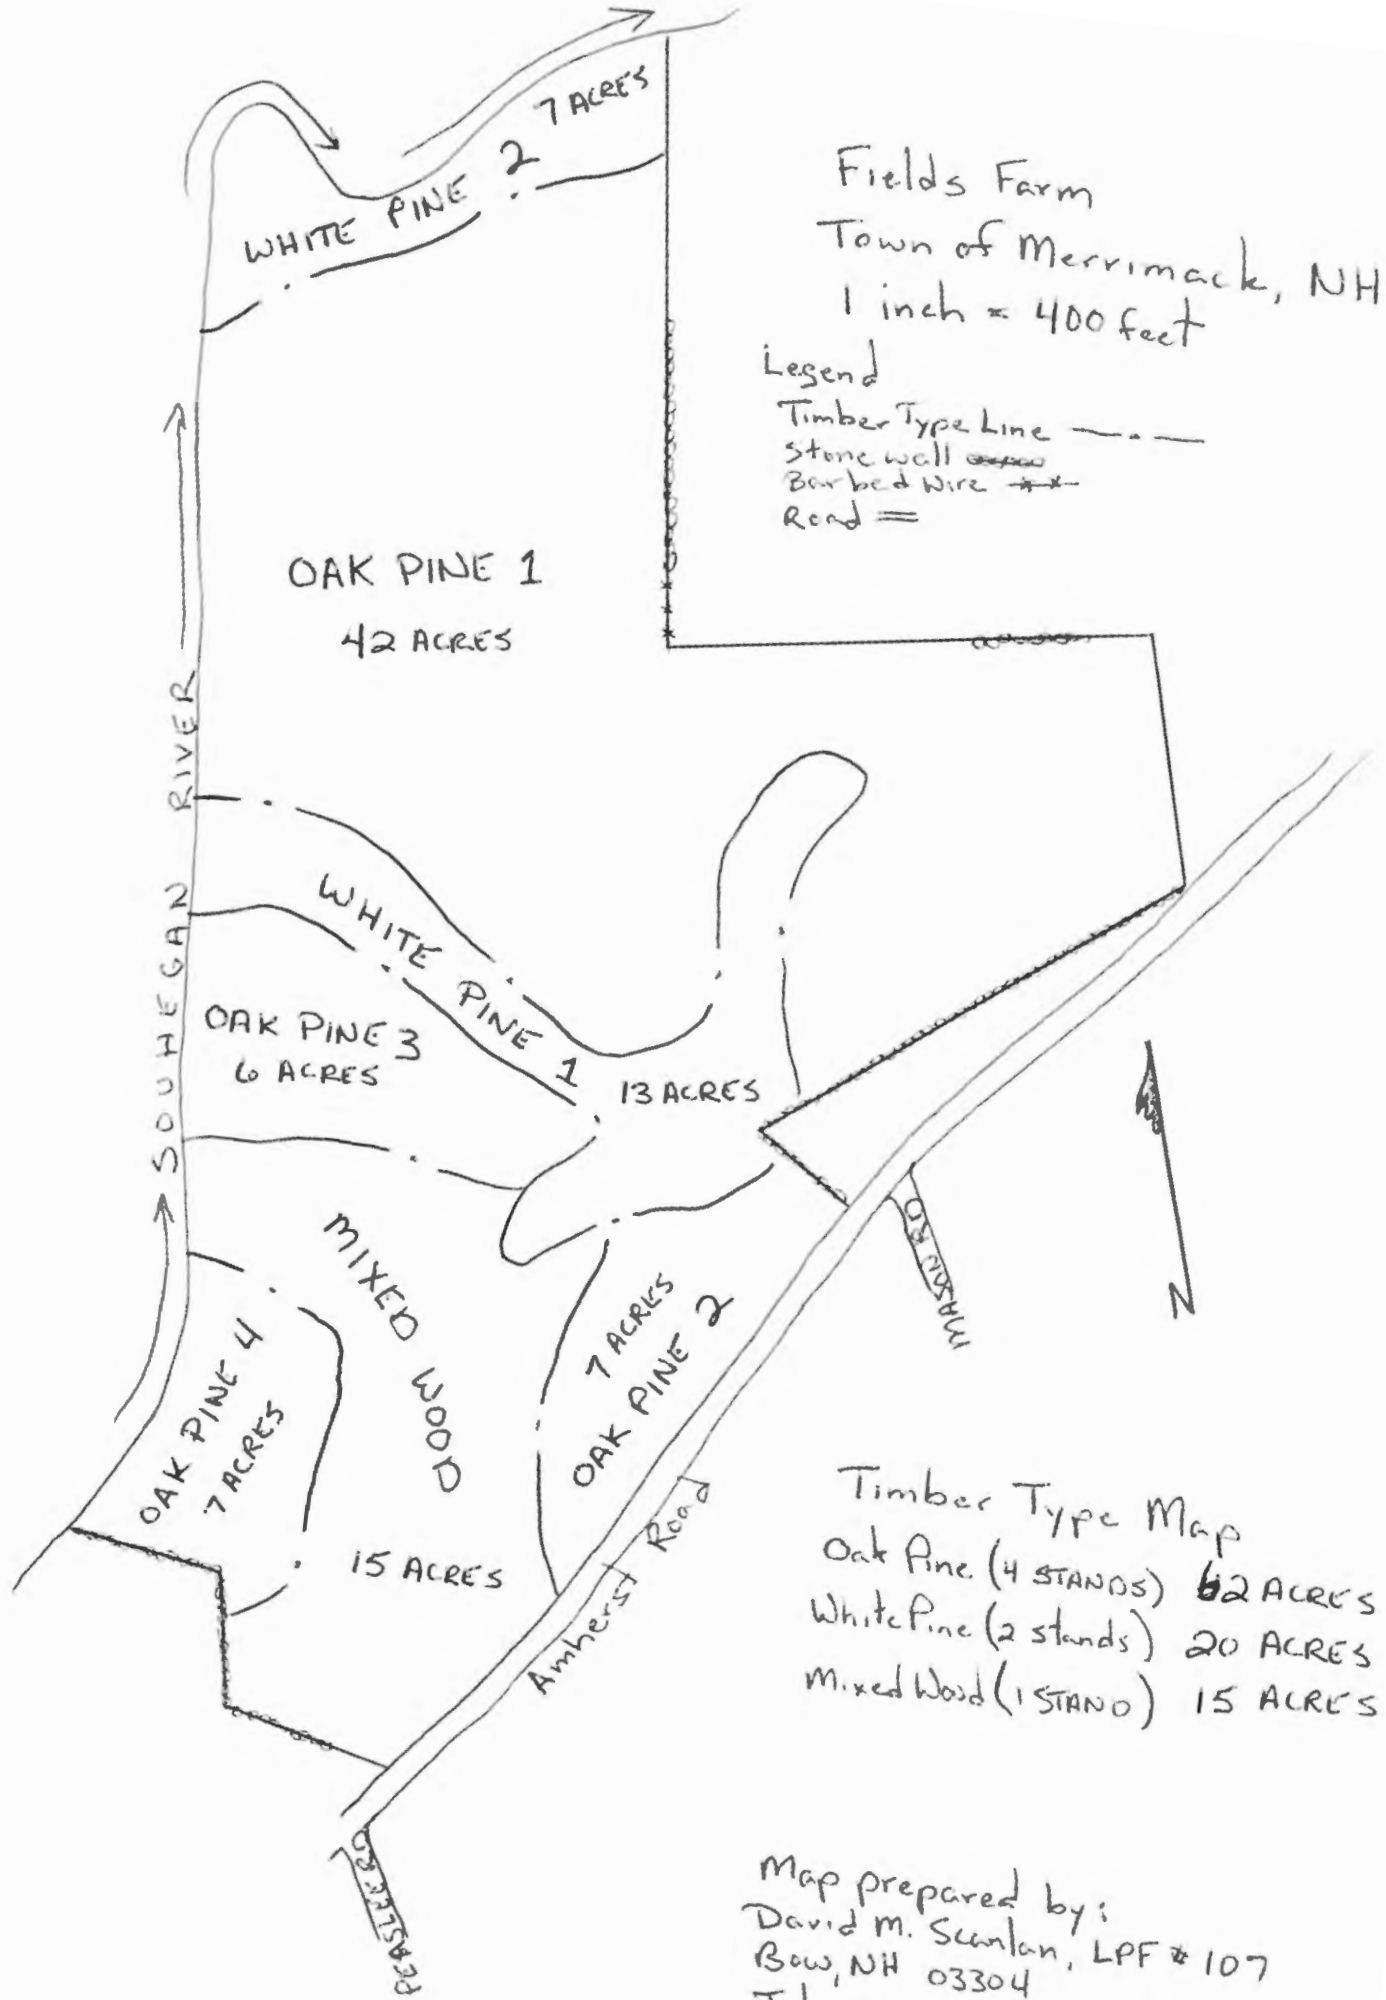 7 ACRES
WHITE PINE 2
Fields Farm
Town of Merrimack, NH
1 inch = 400 feet
Legend
Timber Type Line
Stone wall
Barbed Wire
Road
OAK PINE 1
42 ACRES
SOUHEGAN RIVER
WHITE PINE 1
13 ACRES
OAK PINE 3
6 ACRES
MIXED WOOD
15 ACRES
7 ACRES
OAK PINE 2
OAK PINE 4
7 ACRES
MASON RD
N
Amherst Road
Timber Type Map
Oak Pine (4 STANDS) 62 ACRES
White Pine (2 stands) 20 ACRES
Mixed Wood (1 STAND) 15 ACRES
PEASLEE RD
Map prepared by:
David M. Scanlan, LPF # 107
Bow, NH 03304